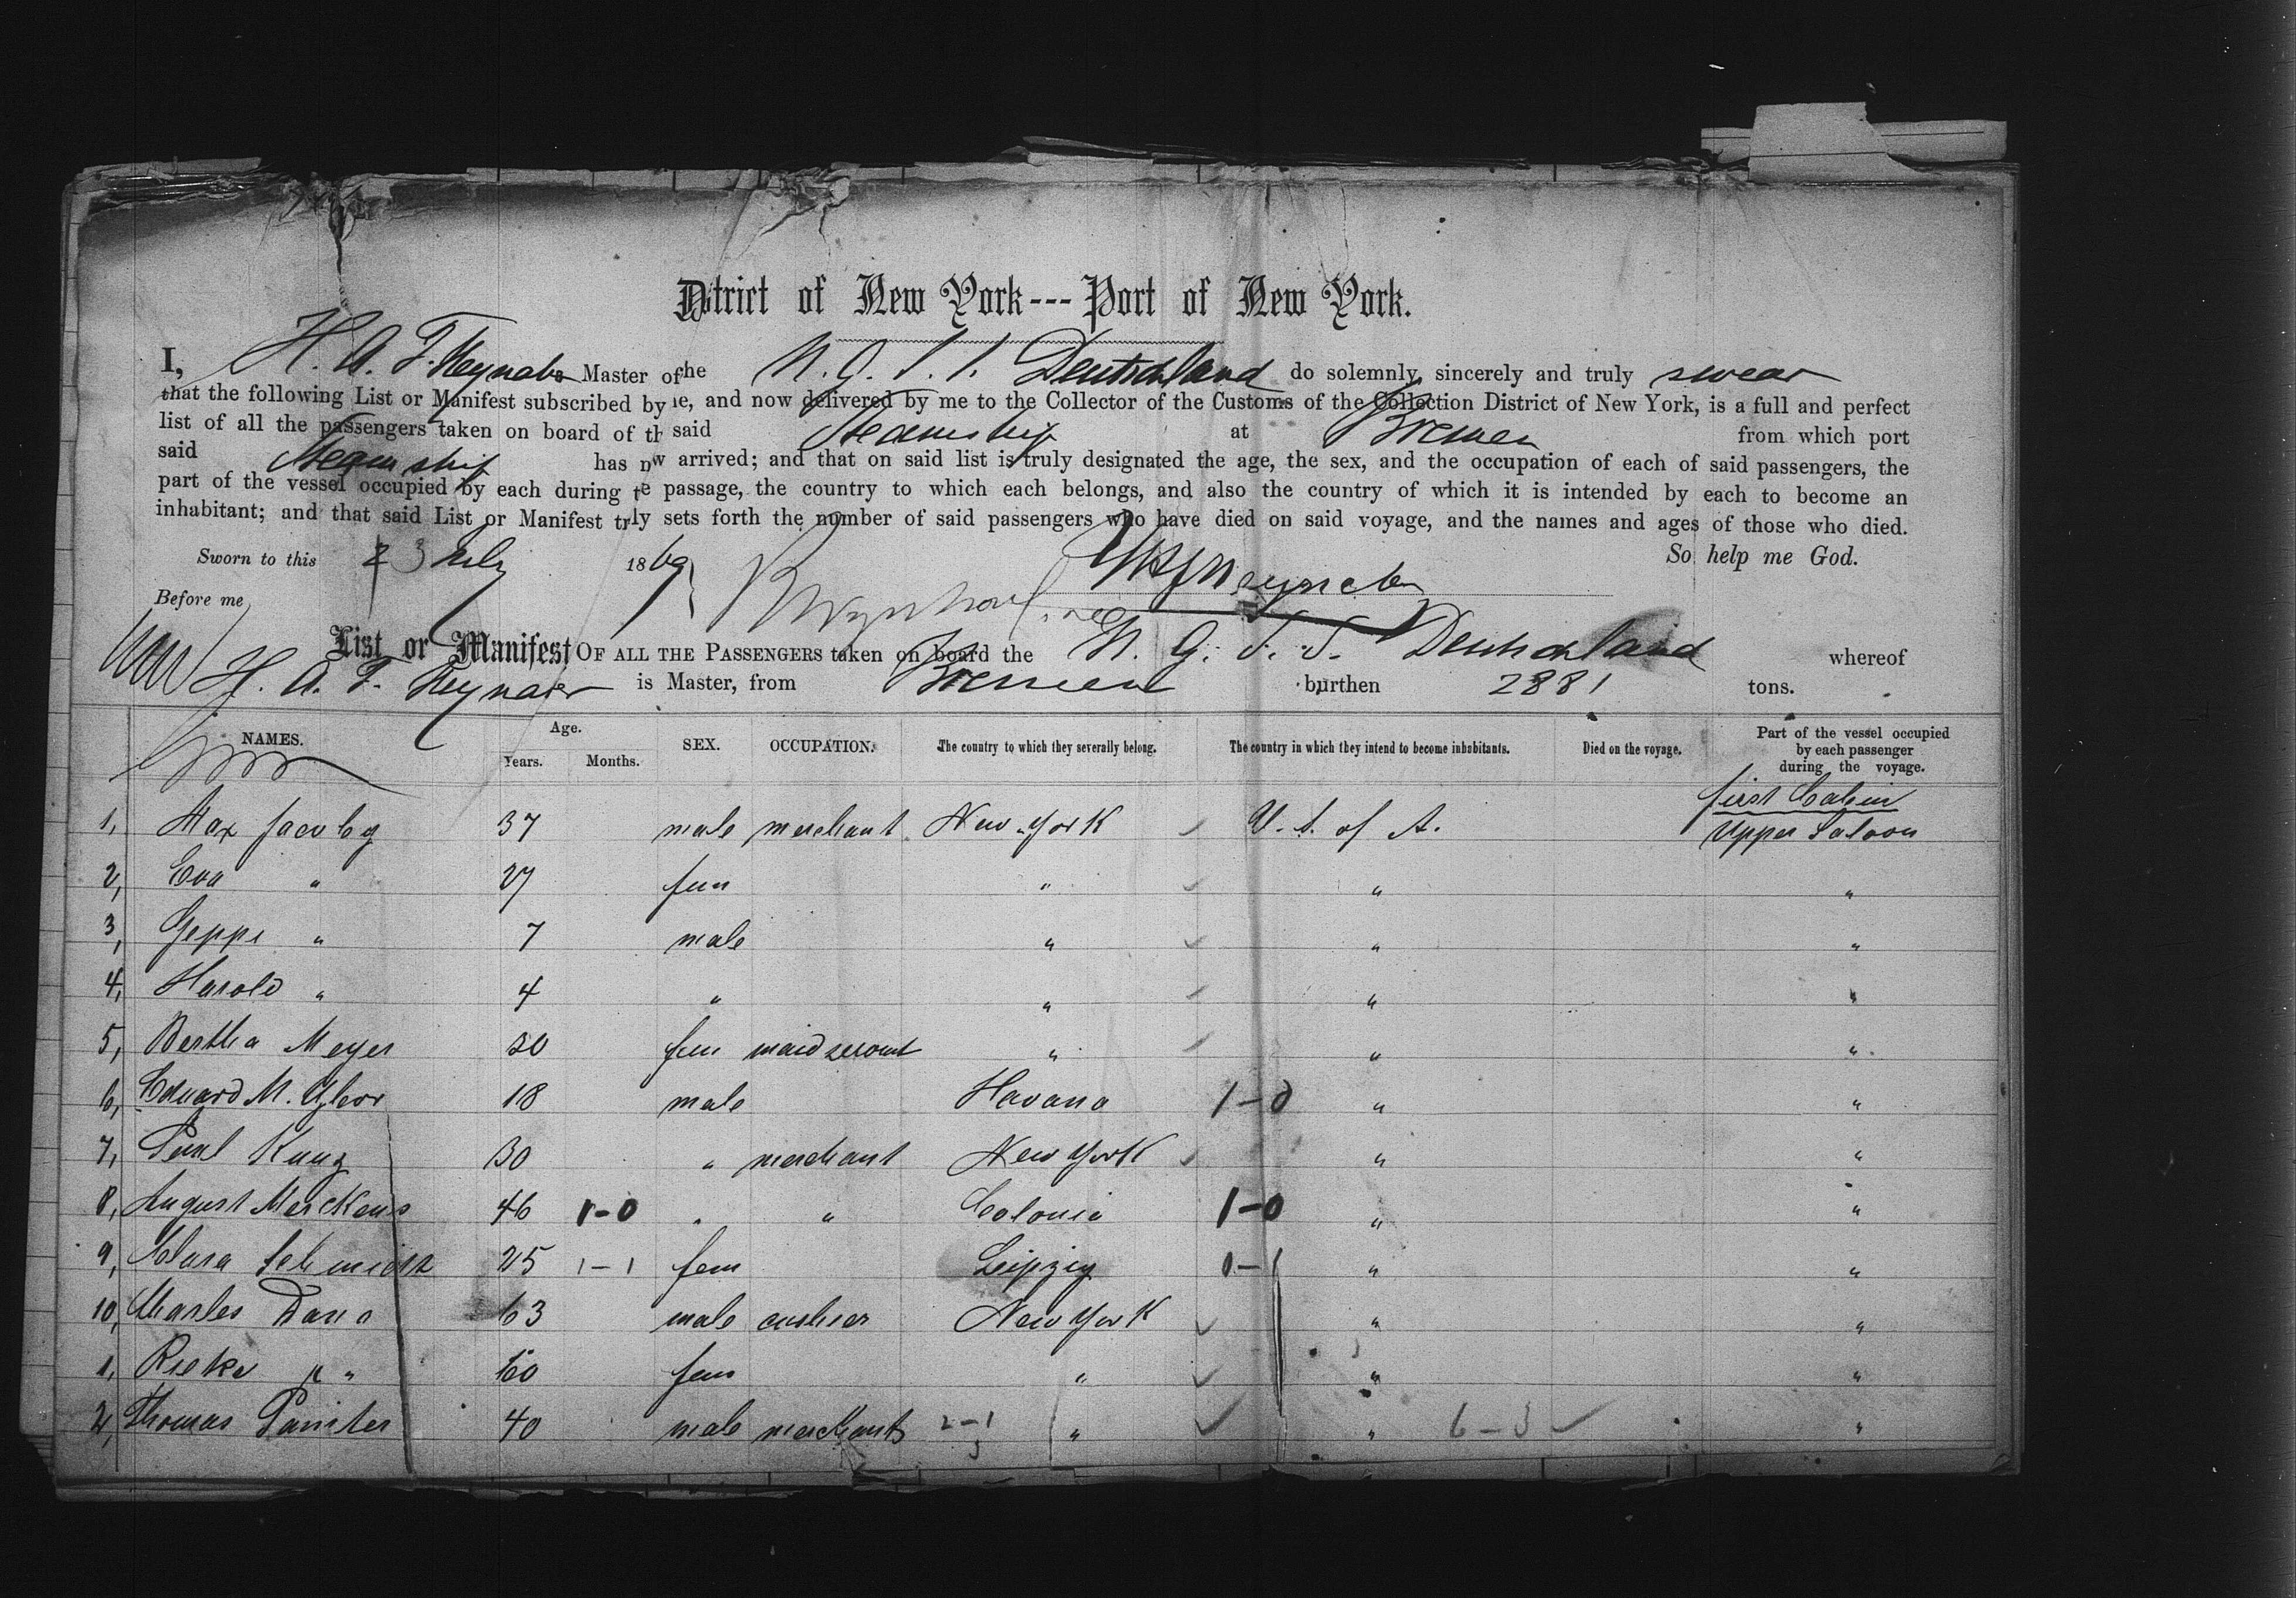 District of New York---Port of New York.
I, H. A. F. Neynaber Master of the N. G. S. S. Deutschland do solemnly, sincerely and truly swear
that the following List or Manifest subscribed by me, and now delivered by me to the Collector of the Customs of the Collection District of New York, is a full and perfect
list of all the passengers taken on board of the said Steamship at Bremen from which port
said Steamship has now arrived; and that on said list is truly designated the age, the sex, and the occupation of each of said passengers, the
part of the vessel occupied by each during the passage, the country to which each belongs, and also the country of which it is intended by each to become an
inhabitant; and that said List or Manifest truly sets forth the number of said passengers who have died on said voyage, and the names and ages of those who died.
Sworn to this 23 July 1869 So help me God.
Before me HAFNeynaber
List or Manifest OF ALL THE PASSENGERS taken on board the N. G. S. S. Deutschland whereof
H. A. F. Neynaber is Master, from Bremen burthen 2881 tons.
NAMES. Age. Years. Months. SEX. OCCUPATION. The country to which they severally belong. The country in which they intend to become inhabitants. Died on the voyage. Part of the vessel occupied by each passenger during the voyage.
first Cabin
1, Max Jacoby 37 male merchant New-York U. S. of A. Upper Saloon
2, Eva " 27 fem " " "
3, Geppi " 7 male " " "
4, Harold " 4 " " " "
5, Bertha Meyer 20 fem maidservant " " "
6, Eduard M. 18 male Havana 1-0 " "
7, Paul Kunz 30 " merchant New York " "
8, August Merckens 46 1-0 " " Colonia 1-0 " "
9, Clara Schmidtz 25 1-1 fem Leipzig 0-1 " "
10, Charles Dana 63 male cashier New York " "
1, Rieke " 60 fem " " "
2, Thomas 40 male merchants 2-1 3 " " 6-3 "